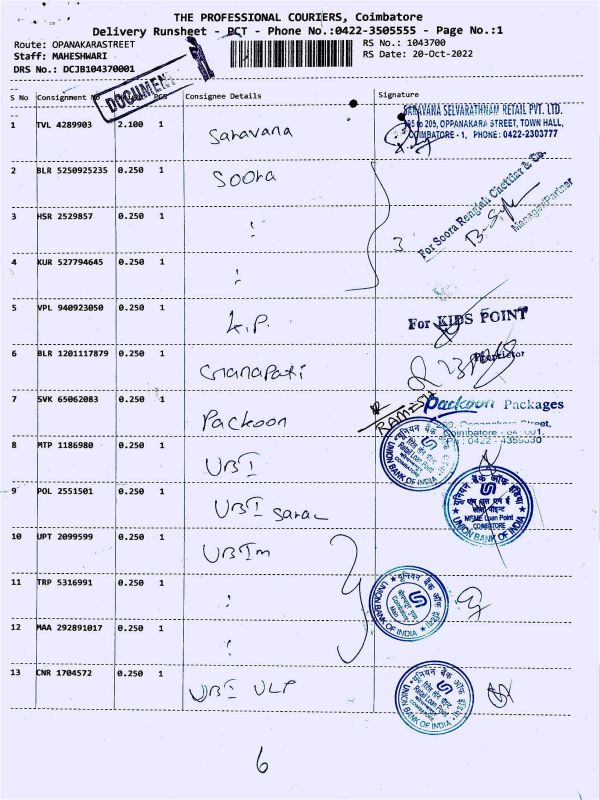 THE PROFESSIONAL COURIERS, Coimbatore
Delivery Runsheet - PCT - Phone No.:0422-3505555 - Page No.:1
Route: OPANAKARASTREET
RS No.: 1043700
Staff: MAHESHWARI
RS Date: 20-Oct-2022
DRS No.: DCJB104370001
DOCUMENT
S No Consignment No PCS Consignee Details Signature
1 TVL 4289903 2.100 1 Saravana
SARAVANA SELVARATHNAM RETAIL PVT. LTD.
to 205, OPPANAKARA STREET, TOWN HALL,
COIMBATORE - 1, PHONE: 0422-2303777
2 BLR 5250925235 0.250 1 Soora
For Soora Rengiah Chettiar & Co.
Manager/Partner
3 HSR 2529857 0.250 1 :
3
4 KUR 527794645 0.250 1 :
5 VPL 940923050 0.250 1 K.P.
For KIDS POINT
Proprietor
6 BLR 1201117879 0.250 1 Gnanapati
7 SVK 65062083 0.250 1 Packoon
RAMESH
Packoon Packages
Coimbatore - 641 001.
8 MTP 1186980 0.250 1 UBI
यूनियन बैंक ऑफ इंडिया
Retail Loan Point
UNION BANK OF INDIA
9 POL 2551501 0.250 1 UBI Saral
यूनियन बैंक ऑफ इंडिया
MSME Loan Point
COIMBATORE
UNION BANK OF INDIA
10 UPT 2099599 0.250 1 UBI m
11 TRP 5316991 0.250 1 :
यूनियन बैंक ऑफ इंडिया
Coimbatore
Main
UNION BANK OF INDIA
12 MAA 292891017 0.250 1 :
13 CNR 1704572 0.250 1 UBI ULP
यूनियन बैंक ऑफ इंडिया
Retail Loan Point
UNION BANK OF INDIA
6